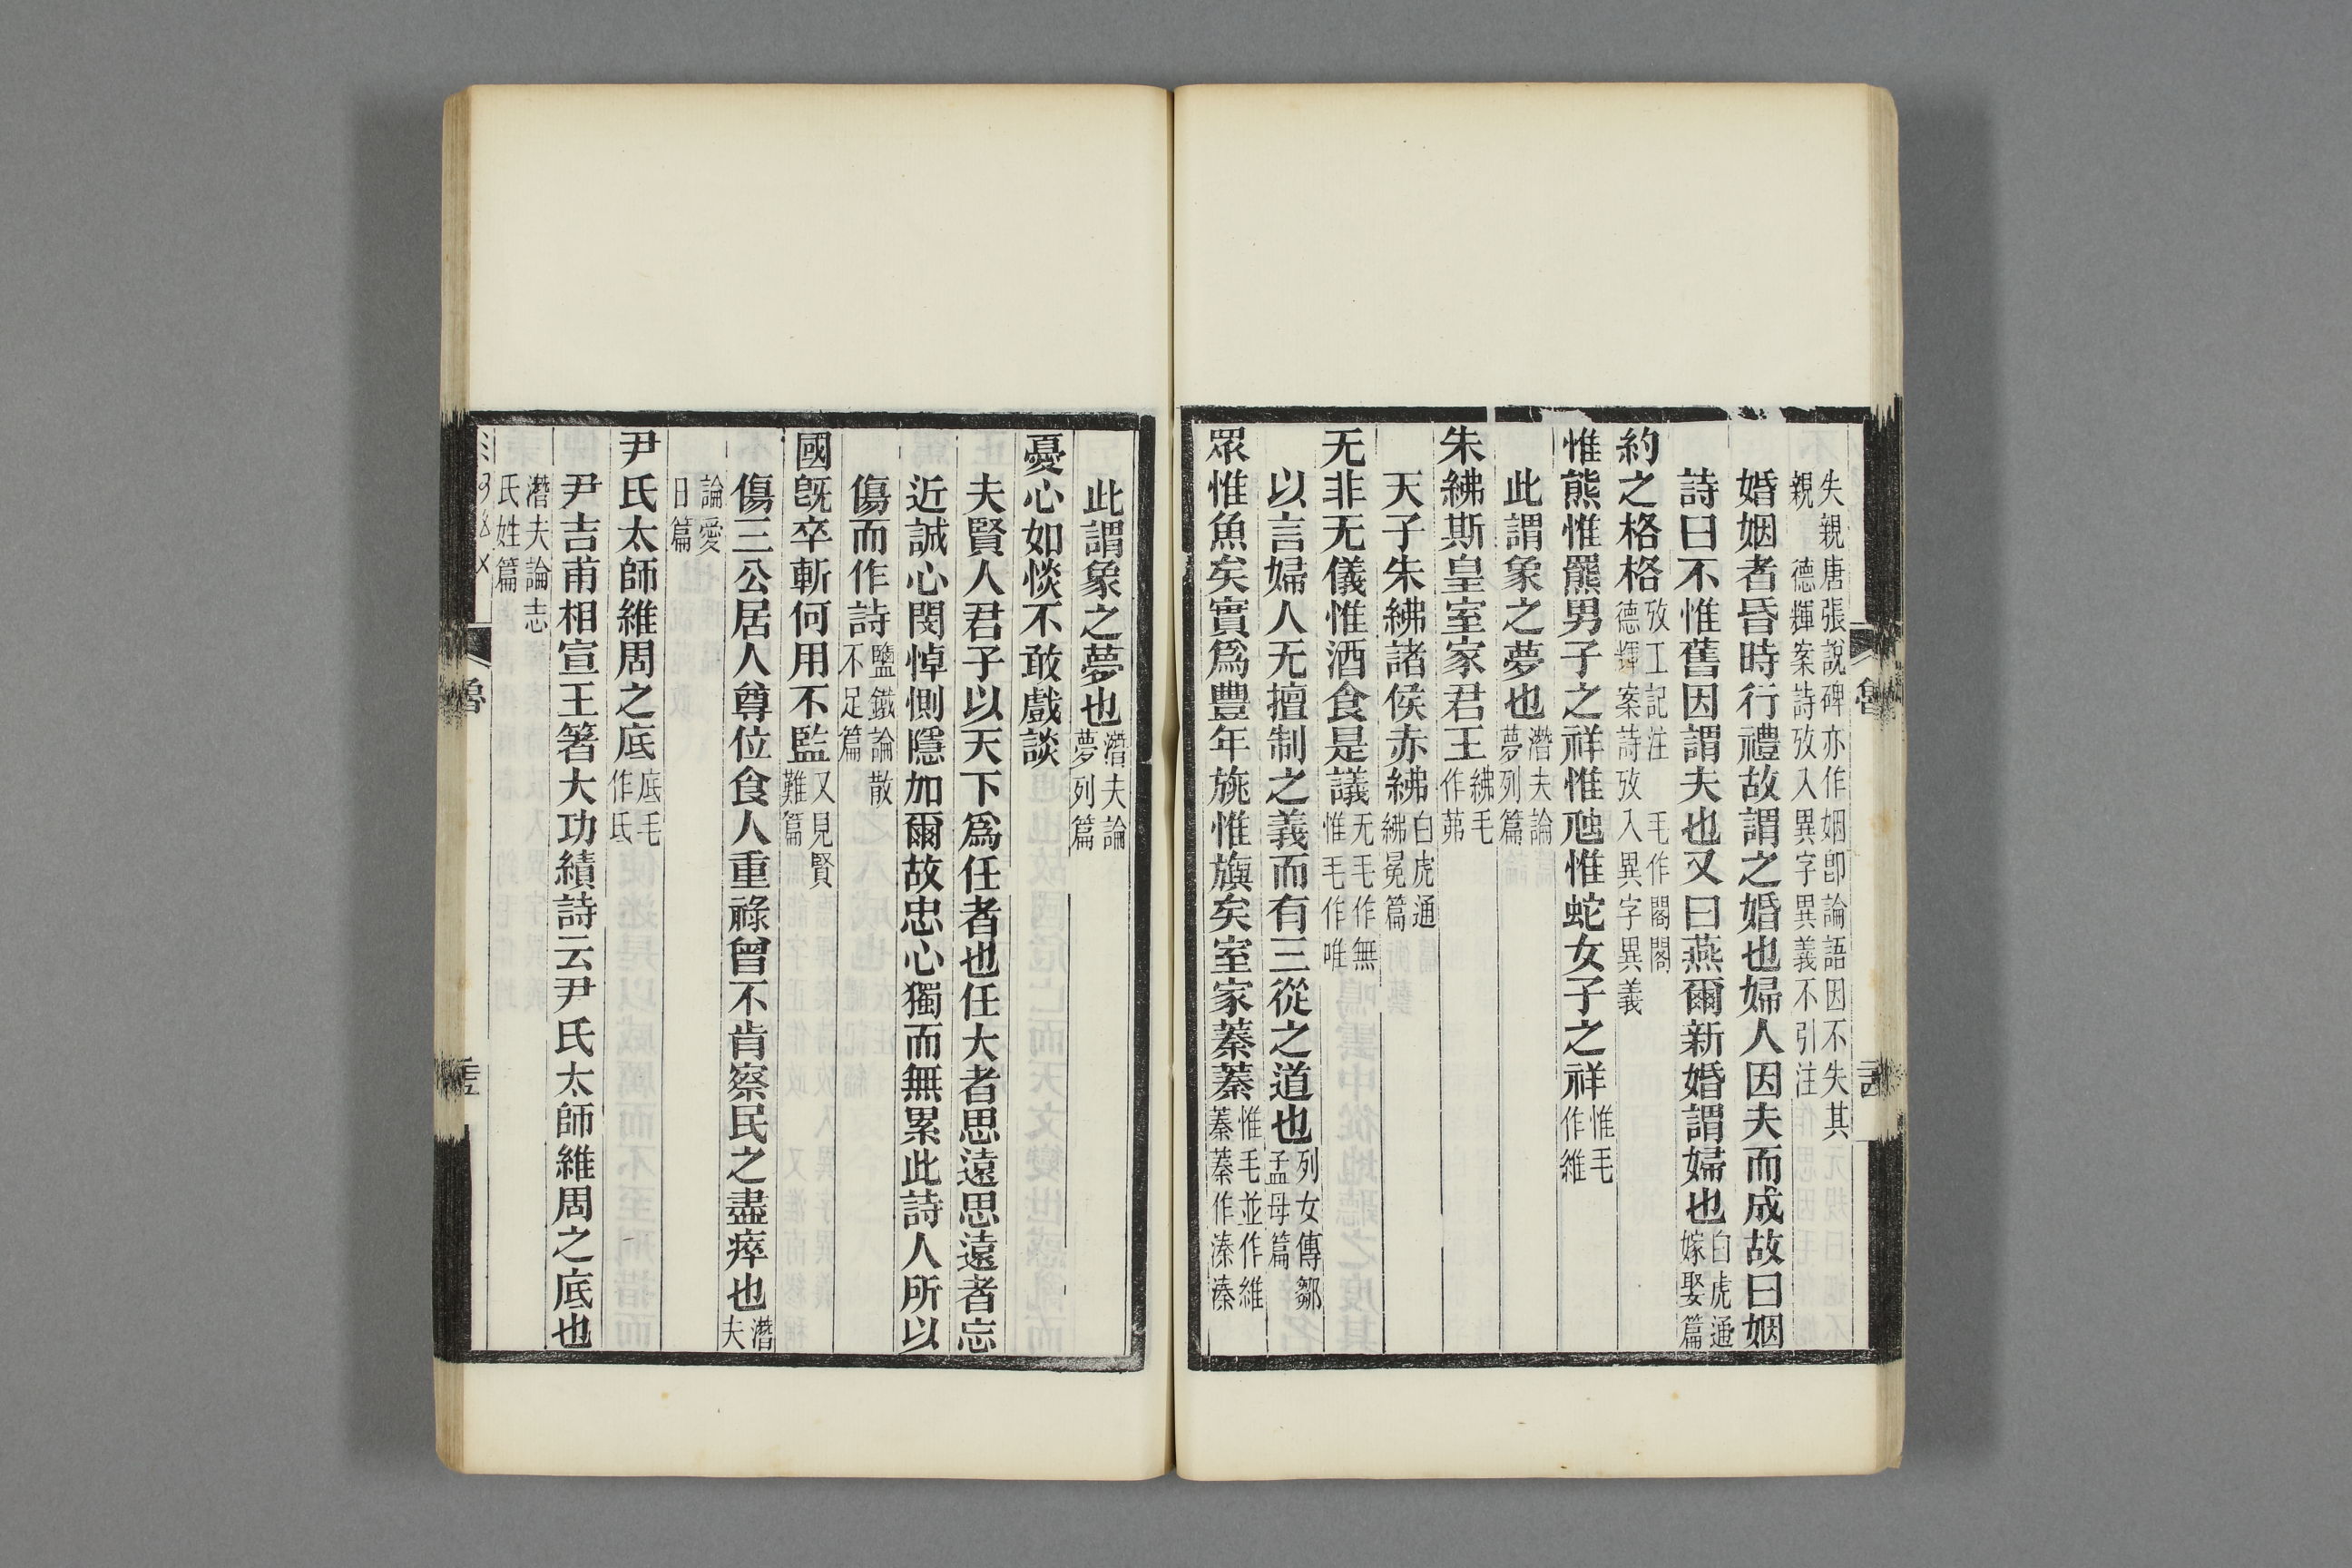 失親唐張說碑亦作姻卽論語因不失其
親　德輝案詩攷入異字異義不引注
婚姻者昏時行禮故謂之婚也婦人因夫而成故曰姻
詩曰不惟舊因謂夫也又曰燕爾新婚謂婦也白虎通嫁娶篇
約之格格攷工記注　毛作閣閣德輝案詩攷入異字異義
惟熊惟羆男子之祥惟虺惟蛇女子之祥惟毛作維
此謂象之夢也潛夫論夢列篇
朱紼斯皇室家君王紼毛作茀
天子朱紼諸侯赤紼白虎通紼冕篇
无非无儀惟酒食是議无毛作無惟毛作唯
以言婦人无擅制之義而有三從之道也列女傳鄒孟母篇
眾惟魚矣實爲豐年旐惟旟矣室家蓁蓁惟毛並作維蓁蓁作溱溱
此謂象之夢也潛夫論夢列篇
憂心如惔不敢戲談
夫賢人君子以天下爲任者也任大者思遠思遠者忘
近誠心閔悼惻隱加爾故忠心獨而無累此詩人所以
傷而作詩鹽鐵論散不足篇
國旣卒斬何用不監又見賢難篇
傷三公居人尊位食人重祿曾不肯察民之盡瘁也潛夫
論愛日篇
尹氏太師維周之底底毛作氐
尹吉甫相宣王箸大功績詩云尹氏太師維周之底也
潛夫論志氏姓篇
魯
魯